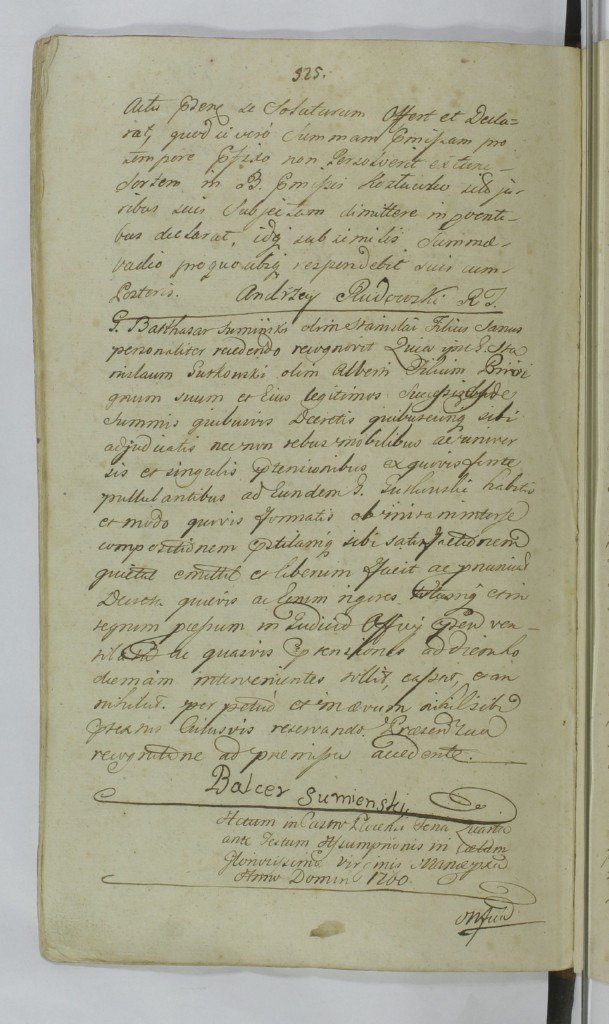 325.
Actu Pdenc se Soluturum Offert et Decla=
rat, quod si vero Summam Pmissam pro
tempore Pfixo non Persolverit extunc
Sortem in B. Pmissis Kozłowko sibi ju-
ribus suis Subjectam dimittere inpoente-
bus declarat, idq sub similis Summæ
vadio pro quo ubiq respondebit suis cum
Posteris. Andrzey Rudowzki R T.
G. Balthasar Sumiński olim Stanislai Filius Sanus
personaliter recedendo recognovit Quia ipse G. Sta
nislaum Gutkowski olim Alberti Filium Privi
gnum suum et Eius legitimos Successores de
Summis quibusvis Decretis quibuscunq sibi
adjudicatis nec non rebus mobilibus ac univer
sis et singulis Ptensionibus ex quovis fonte
pullulantibus ad Eundem G. Gutkowski habitis
et modo quovis formatis ob initam interse
compositionem sibi satisfactionem
quietat emittit et liberum facit ac
Decreta quævis ac Eorum rigores et in
segnum in Judicio Officy ven-
ac quasvis Ptensiones ad dicendo
diemam intervenientes tollit, cassat, et an
nihilat. per et in ævum nihil sibi
Juris reservando Præsen sua
recognitione ad premissa accedente.
Balcer Sumienski
Actum in Castro Feria Quarta
ante Festum Assumptionis in Cælum
Gloriosissimæ Virginis Mariæ
Anno Domini 1700.